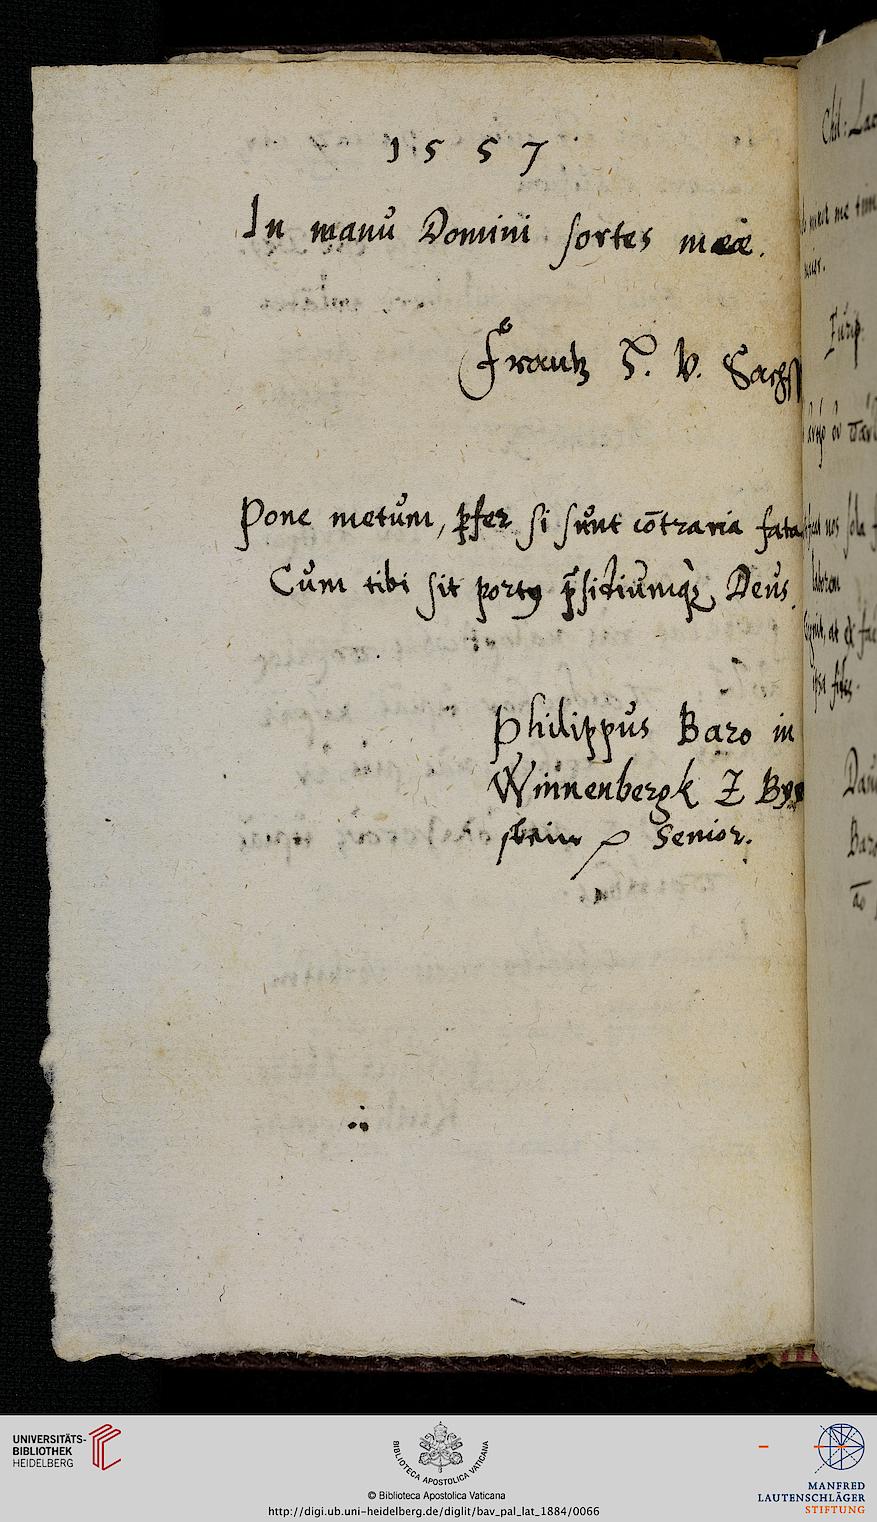 1557
In manu Domini sortes meæ.
Frantz H. V. Sachss
Pone metum, ꝑfer si sunt cōtraria fata
Cum tibi sit portꝰ p̃sidiumq̃ꝫ Deus.
Philippus Baro in
Winnenbergk Z By
stein Senior.
Eurip.
laborem
ipsa fides.
UNIVERSITÄTS-
BIBLIOTHEK
HEIDELBERG
BIBLIOTECA APOSTOLICA VATICANA
© Biblioteca Apostolica Vaticana
http://digi.ub.uni-heidelberg.de/diglit/bav_pal_lat_1884/0066
MANFRED
LAUTENSCHLÄGER
STIFTUNG